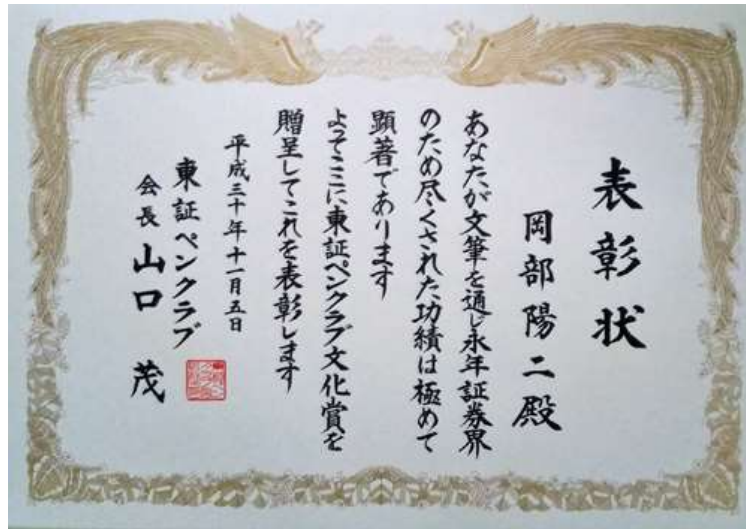 表彰状
岡部陽二殿
あなたが文筆を通し永年証券界
のため尽くされた功績は極めて
顕著であります
よってここに東証ペンクラブ文化賞を
贈呈してこれを表彰します
平成三十年十一月五日
東証ペンクラブ
会長 山口 茂